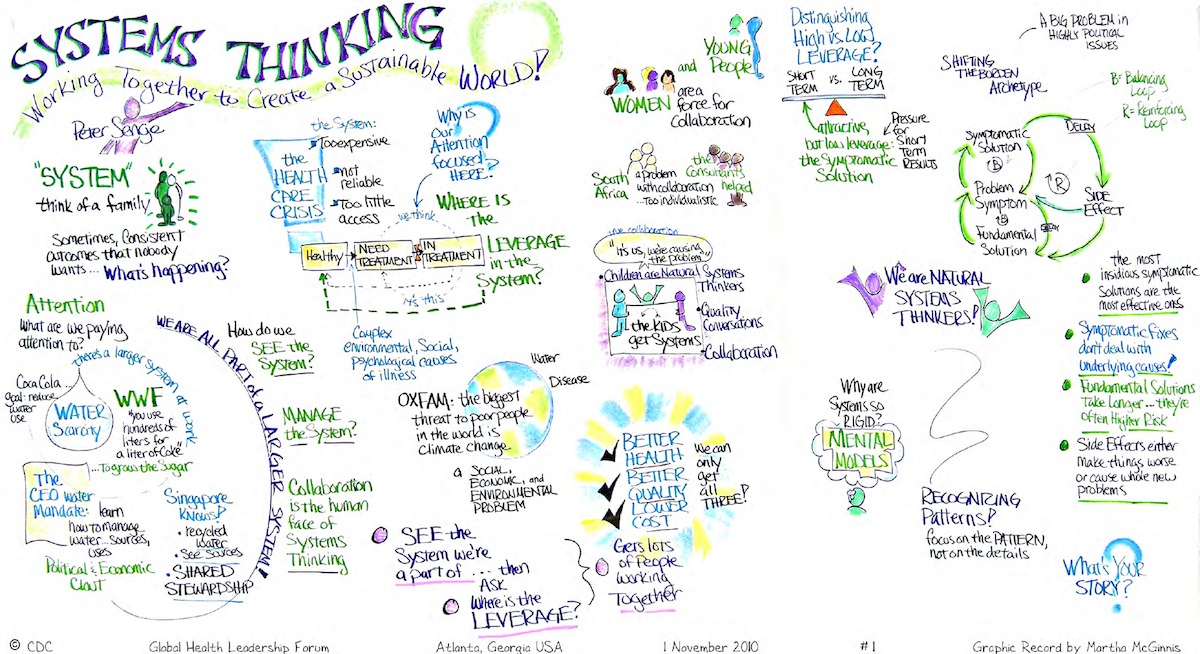 SYSTEMS THINKING
Working Together to Create a Sustainable WORLD!
Peter Senge
"SYSTEM"
think of a family
Sometimes, Consistent
outcomes that nobody
wants... What's happening?
Attention
What are we paying
attention to?
there's a larger system at work
Coca Cola...
goal: reduce
water
use
WATER
Scarcity
WWF
"You use
hundreds of
liters for
a liter of Coke"
...to grow the Sugar
The
CEO water
Mandate: learn
how to manage
water...sources,
uses
Political & Economic
Clout
Singapore
KNOWS!
• recycled
water
• See Sources
• SHARED
STEWARDSHIP
WE ARE ALL PART of a LARGER SYSTEM!
the System:
Too expensive
not
reliable
Too little
access
the
HEALTH
CARE
CRISIS
Why is
our
Attention
focused
HERE?
we think.
WHERE IS
the
LEVERAGE
in the
System?
Healthy
NEED
TREATMENT
IN
TREATMENT
Complex
environmental, Social,
psychological causes
of illness
How do we
SEE the
System?
MANAGE
the System?
Collaboration
is the human
face of
Systems
Thinking
Water
Disease
OXFAM: the biggest
threat to poor people
in the world is
climate change
a SOCIAL,
ECONOMIC, and
ENVIRONMENTAL
PROBLEM
SEE the
System we're
a part of ... then
ASK
Where is the
LEVERAGE?
YOUNG
and People
WOMEN
are a
force for
Collaboration
South
Africa
a problem
with collaboration
...Too individualistic
the
consultants
helped
true collaboration
"It's us, we're causing
the problem"
• Children are Natural Systems
Thinkers
the KIDS
get Systems
• Quality
Conversations
• Collaboration
BETTER
HEALTH
BETTER
QUALITY
LOWER
COST
We can
only
get
all
THREE!
Gets lots
of People
working
Together
Distinguishing
High vs. Low
LEVERAGE?
SHORT
TERM
vs.
LONG
TERM
attractive,
but low leverage:
the Symptomatic
Solution
Pressure
for
Short
Term
RESULTS
A BIG PROBLEM in
HIGHLY POLITICAL
ISSUES
SHIFTING
THE BURDEN
Archetype
B= Balancing
Loop
R= Reinforcing
Loop
DELAY
Symptomatic
Solution
B
R
Problem
Symptom
B
DELAY
Fundamental
Solution
SIDE
EFFECT
We are NATURAL
SYSTEMS
THINKERS!
the most
insidious symptomatic
Solutions are the
most effective ones
Symptomatic fixes
don't deal with
underlying causes!
Fundamental Solutions
Take longer... they're
often Higher Risk
Side Effects either
make things worse
or cause whole new
problems
Why are
Systems so
RIGID?
MENTAL
MODELS
RECOGNIZING
Patterns!
focus on the PATTERN,
not on the details
What's YOUR
STORY?
© CDC Global Health Leadership Forum Atlanta, Georgia USA 1 November 2010 #1 Graphic Record by Martha McGinnis